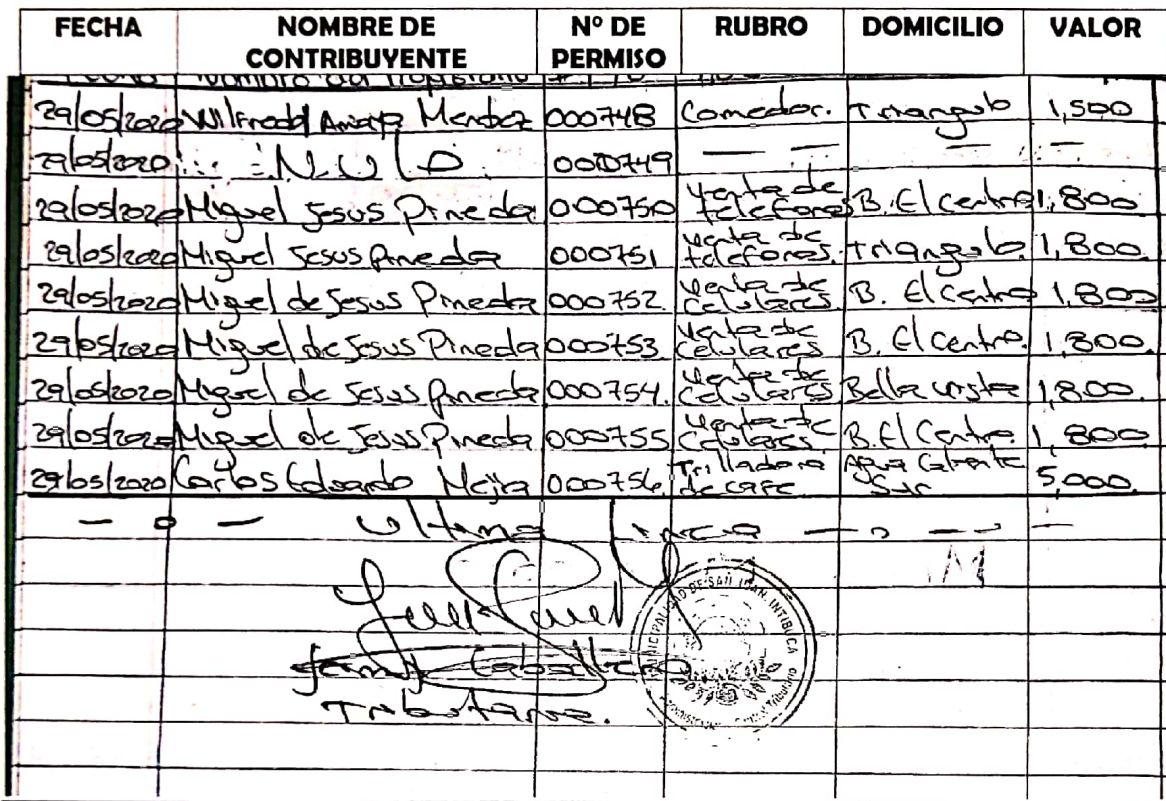 FECHA NOMBRE DE CONTRIBUYENTE Nº DE PERMISO RUBRO DOMICILIO VALOR
29/05/2020 Wilfredo Amaya Mendez 000748 Comedor. Triangulo 1,500
29/05/2020 NULO 000749 — — — —
29/05/2020 Miguel Jesus Pineda 000750 Venta de telefonos B. El Centro 1,800
29/05/2020 Miguel Jesus Pineda 000751 Venta de telefonos. Triangulo. 1,800.
29/05/2020 Miguel de Jesus Pineda 000752. Venta de Celulares B. El Centro 1,800
29/05/2020 Miguel de Jesus Pineda 000753. Venta de Celulares B. El Centro. 1,800.
29/05/2020 Miguel de Jesus Pineda 000754. Venta de Celulares Bella vista 1,800.
29/05/2020 Miguel de Jesus Pineda 000755 Venta de Celulares. B. El Centro. 1,800.
29/05/2020 Carlos Eduardo Mejia 000756 Trilladora de cafe Agua Caliente Sur 5,000.
— o — Ultima Linea — o — —
Caballero
Tributaria.
MUNICIPALIDAD DE SAN JUAN, INTIBUCA
Tributario